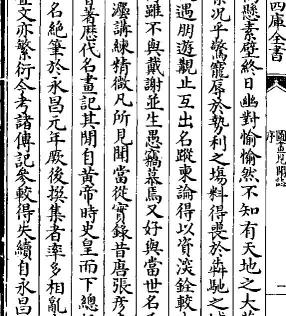 四庫全書
圖畫見聞誌
序
一
懸素壁終日幽對愉愉然不知有天地之大
況乎驚寵辱於勢利之塲料得喪於犇馳之
遇朋遊觀止互出名蹤柬論得以資淡銓較
雖不與戴謝並生愚竊慕焉又好與當世名
灋講練精微凡所見聞當從實錄昔唐張彥
嘗著歷代名畫記其間自黃帝時史皇而下總
名絕筆於永昌元年厥後撰集者率多相亂
疊文亦繁衍今考諸傳記參較得失續自永昌